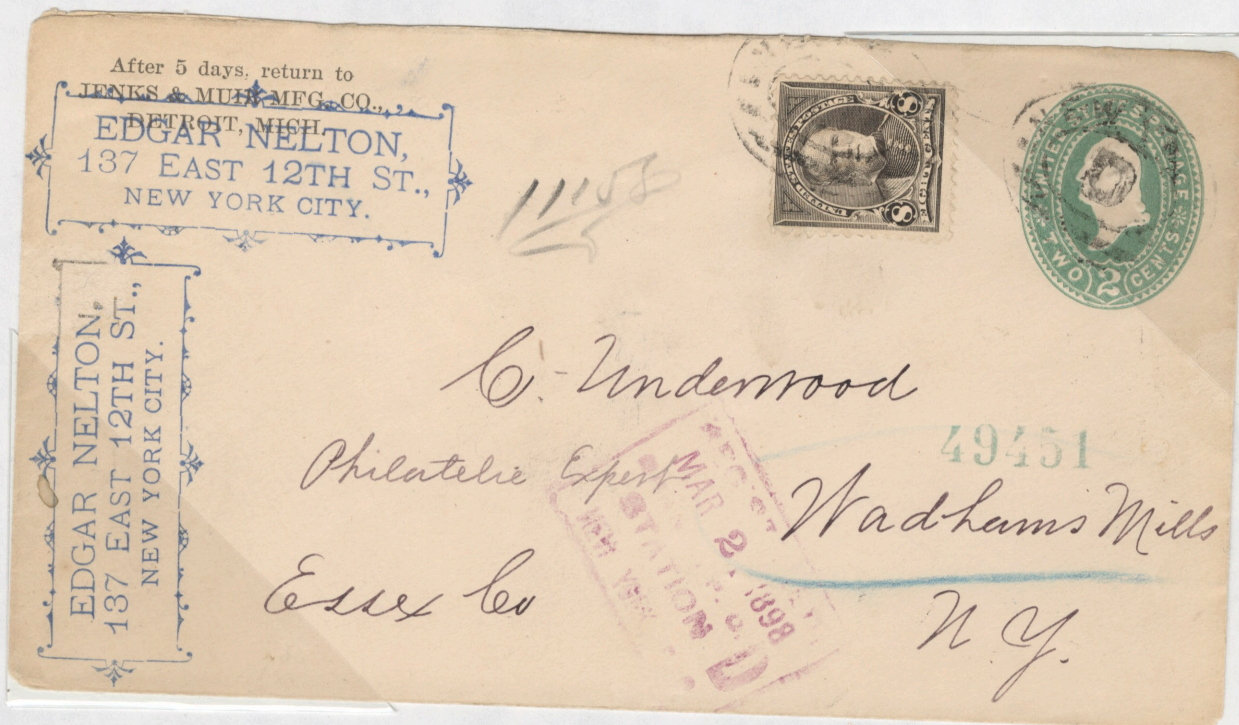 After 5 days, return to
JENKS & MUIR MFG. CO.,
DETROIT, MICH.
EDGAR NELTON,
137 EAST 12TH ST.,
NEW YORK CITY.
EDGAR NELTON,
137 EAST 12TH ST.,
NEW YORK CITY.
11158
8
8
UNITED STATES POSTAGE
TWO 2 CENTS
C. Underwood
Philatelic Expert
49451
Wadhams Mills
Essex Co
N. Y.
MAR 2 1898
STATION D
NEW YORK